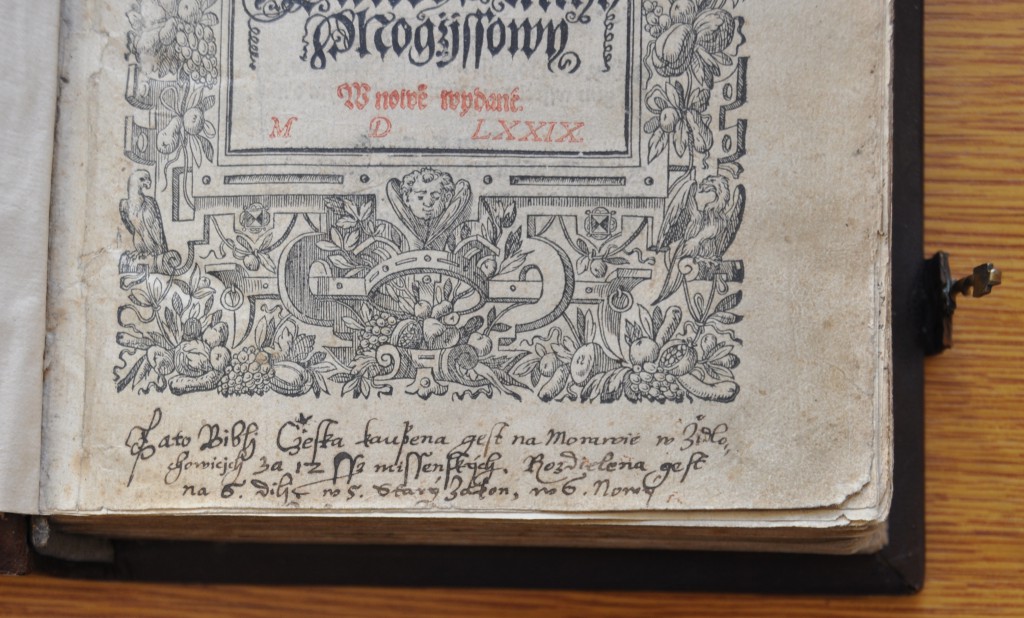 Mogžjssowy
W nowě wydané.
M D LXXIX
Tato Bibly Cžeska kaupena gest na Morawie w Židlo-
chowicych za 12 missenskych. Rozdielena gest
na 6. dilu w 5. Stary Zakon, w 6. Nowy